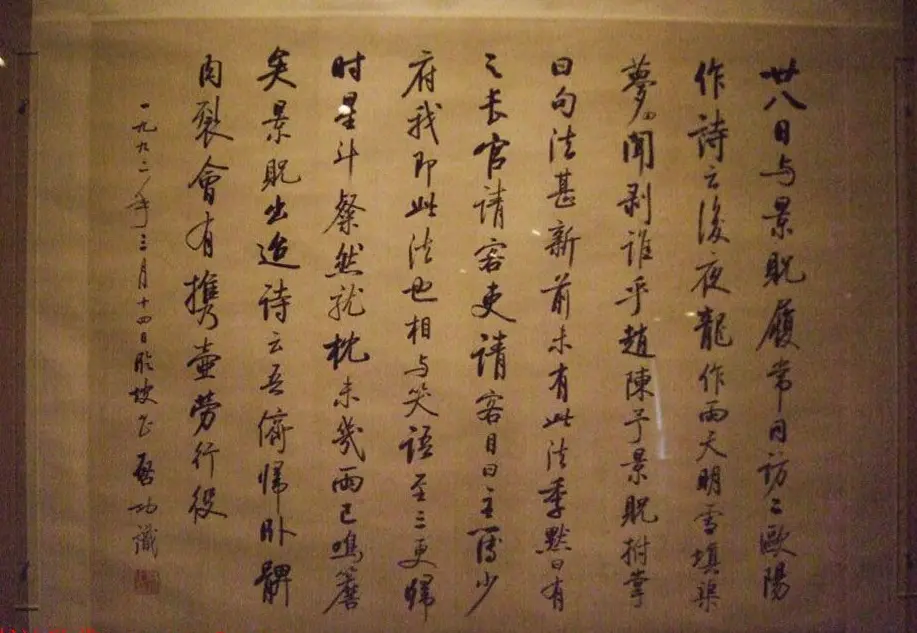 廿八日与景贶履常同访二歐陽
作詩云後夜龍作雨天明雪填渠
夢回聞剥誰乎趙陳予景贶拊掌
曰句法甚新前未有此法季默曰有
之长官請客吏請客目曰主簿少
府我即此法也相与笑語至三更歸
时星斗粲然就枕未幾雨已鳴簷
矣景贶出迨诗云吾儕歸卧髀
肉裂會有携壶劳行役
一九九二年三月十四日 启功識